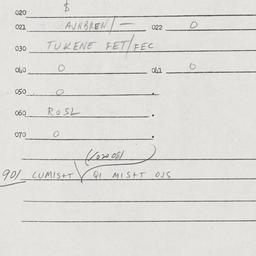 020 $
021 AVNBREN/— 022 0
030 TUKENE FET/FEC
040 0 041 0
050 0 .
060 ROSL .
070 0 .
901 CUMIS+T √ QI MIS+T OJS